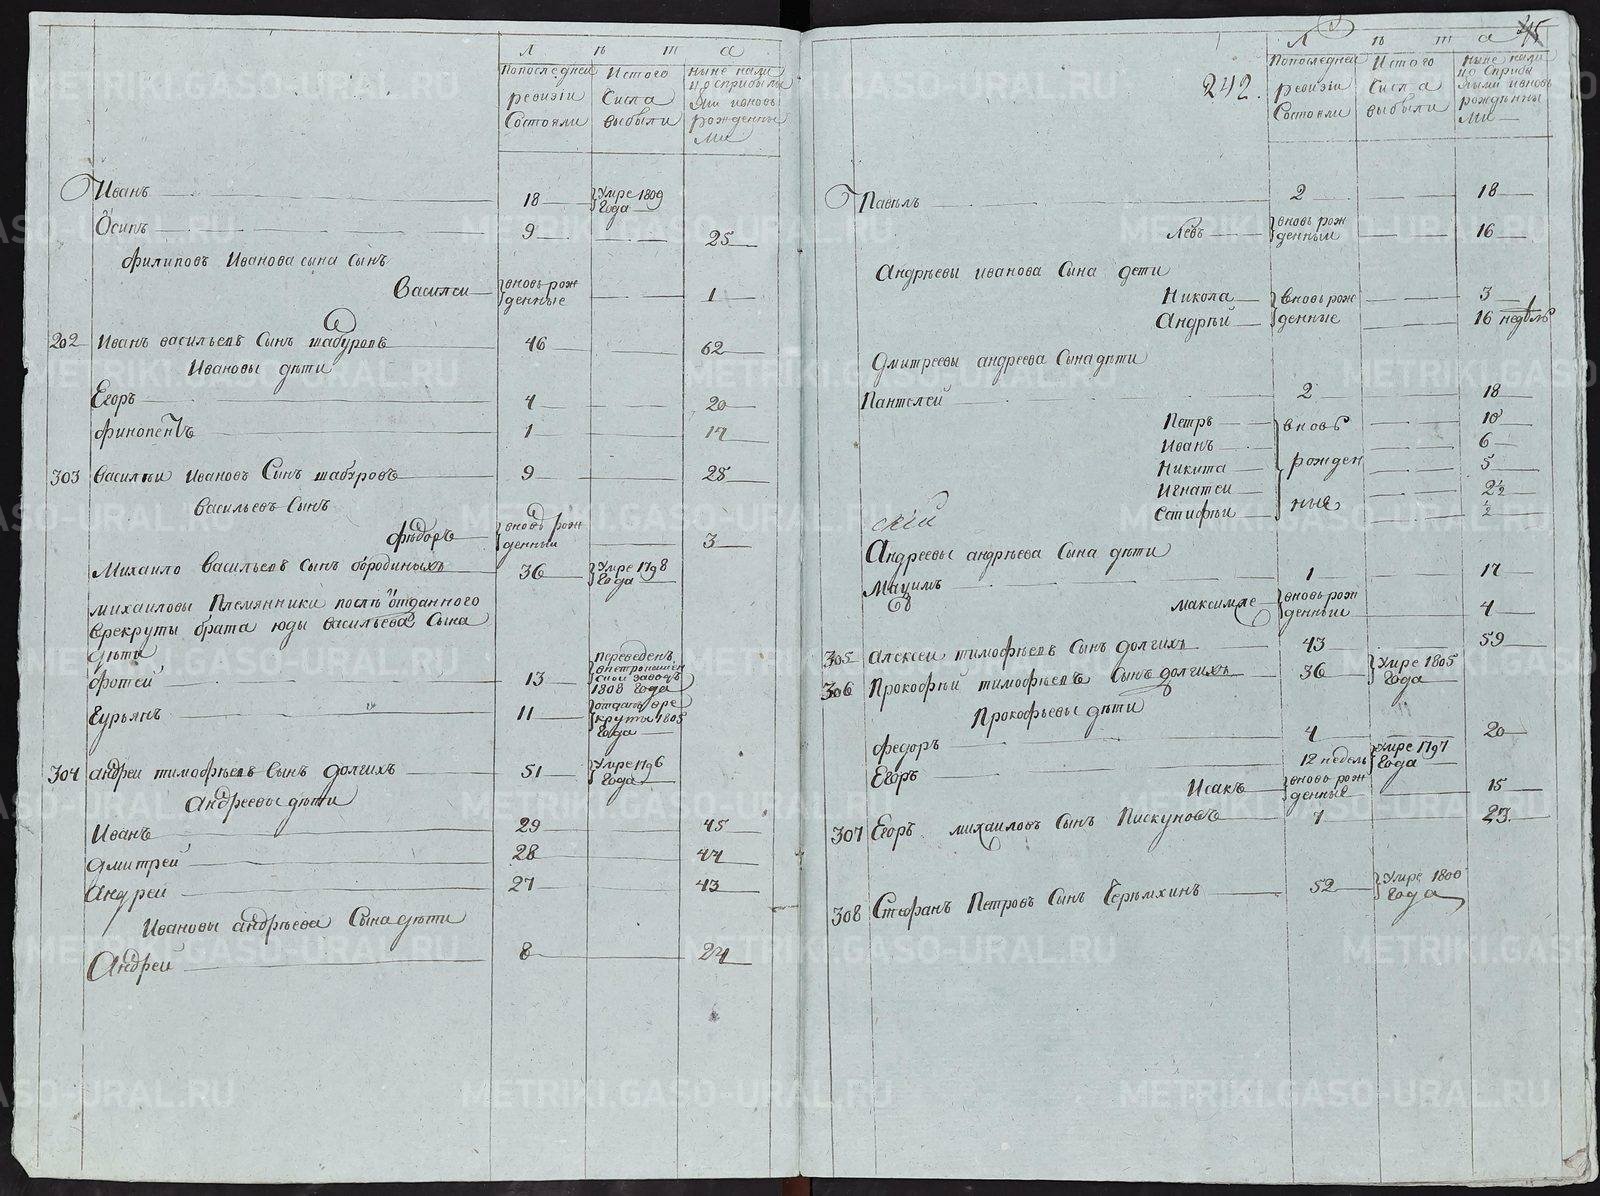 Л ѣ т а
Попоследней ревизіи Состояли
Истого Сисла выбыли
ныне нали цо сприбылы ми ивновь рожденны ми
Иванъ 18 Умре 1809 Года
Осипъ 9 25
Филиповъ Иванова сына сынъ
Василеи вновь рож денные 1
202 Иванъ васильевъ Сынъ шабуровъ 46 62
Ивановы дѣти
Егоръ 4 20
Финопентъ 1 17
303 Василѣи Ивановъ Сынъ шабуровъ 9 25
Васильевъ Сынъ
Фѣдоръ вновь рож денный 3
Михаило Васильевъ сынъ бородиныхъ 36 Умре 1798 Года
михаиловы Племянники послѣ отданного
Врекруты брата юды васильева Сына
дѣти
Фотей 13 переведенъ 1808 Года
Гурьянъ 11 отданъ вре круты 1805 Года
304 андреи тимофѣевъ Сынъ долгихъ 51 Умре 1796 Года
Андреевы дѣти
Иванъ 29 45
Дмитрей 28 44
Андреи 27 43
Ивановы андрѣева Сына дѣти
Андрей 8 24
45
242.
Л ѣ т а
Попоследней ревизіи Состояли
Истого Сисла выбыли
ныне нали цо Сприбы лыми ивновь рожденны ми
Павѣлъ 2 18
Левъ вновь рож денный 16
Андрѣевы иванова Сына дети
Никола вновь рож 3
Андрѣй денные 16 недѣль
Дмитреевы андреева Сына дѣти
Пантелей 2 18
Петръ вновь 10
Иванъ 6
Никита рожден 5
Игнатеи 2½
Естифѣи ные ½
скій
Андреевы андрѣева Сына дѣти
1 17
вновь рож денный 4
305 алексеи тимофѣевъ Сынъ долгихъ 43 59
306 Прокофѣй тимофѣевъ Сынъ долгихъ 36 Умре 1805 Года
Прокофьевы дѣти
Федоръ 4 20
Егоръ 12 недель Умре 1797 Года
Исакъ вновь рож денные 15
307 Егоръ михаиловъ Сынъ Пискуновъ 7 23
308 Стефанъ Петровъ Сынъ Черѣмхинъ 52 Умре 1800 Года
METRIKI.GASO-URAL.RU